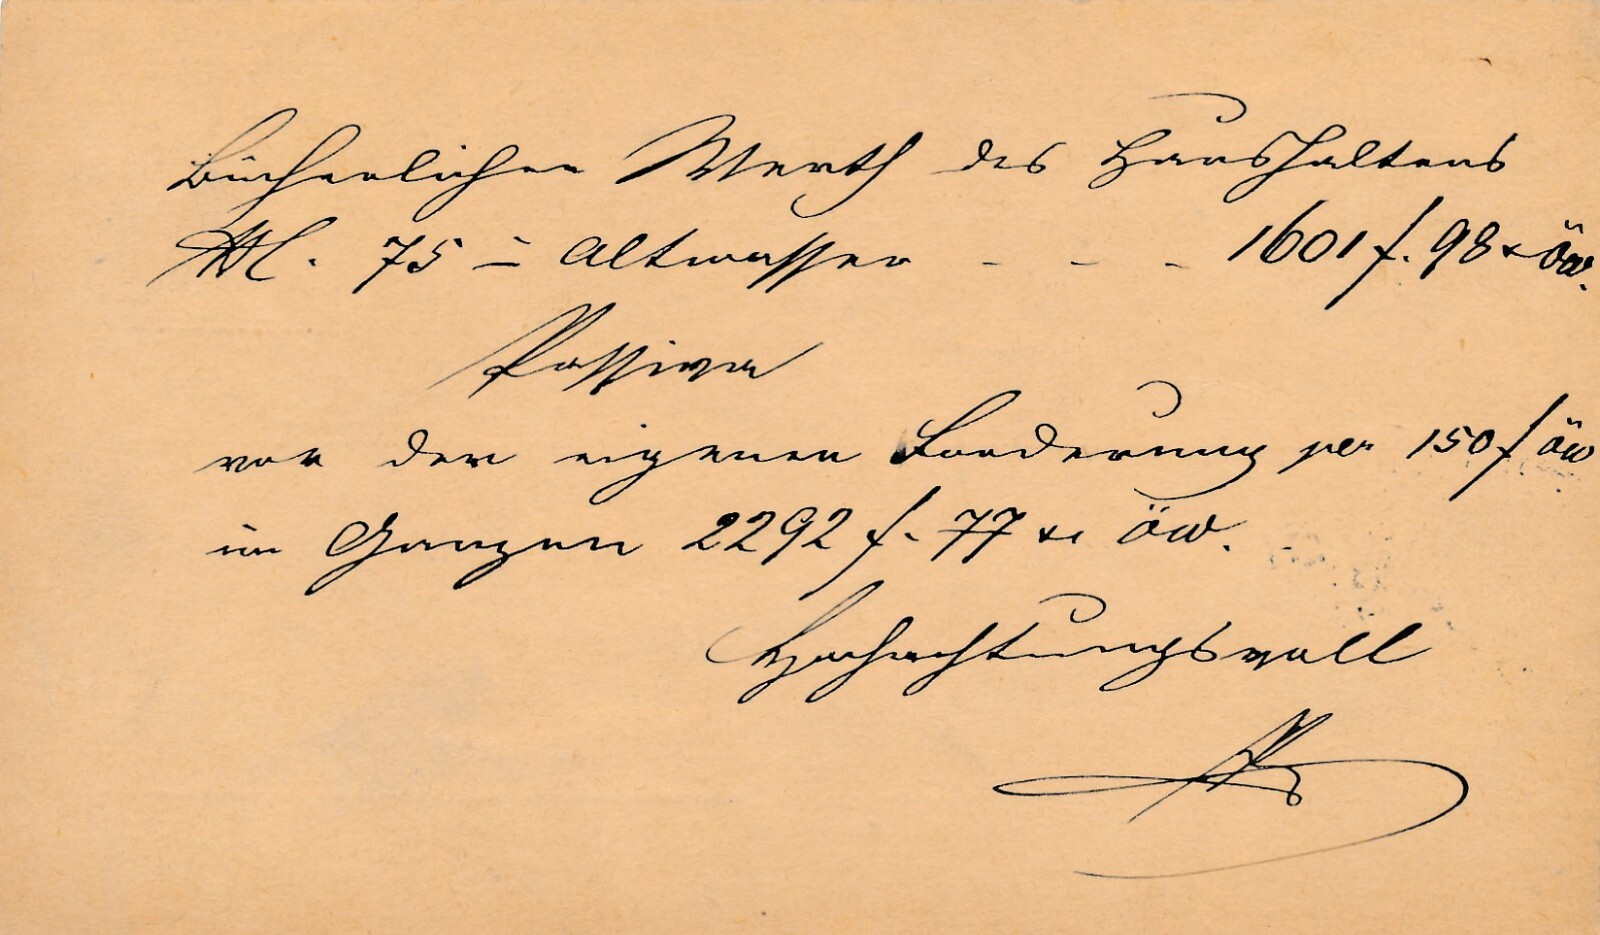 Bücherlicher Werth des Haushaltens
N. 75 in Altwasser - - - 1601 f. 98 x öW.
Passiva
vor der eigenen Forderung per 150 f öW
im Ganzen 2292 f. 77 xr öW.
Hochachtungsvoll